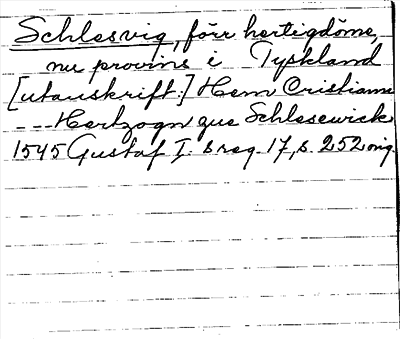 Schlesvig, förr hertigdöme,
nu provins i Tyskland
[utanskrift:] Hern Cristianne
---Hertzogn zue Schlesewick
1545 Gustaf I: s reg. 17, s. 252 orig.